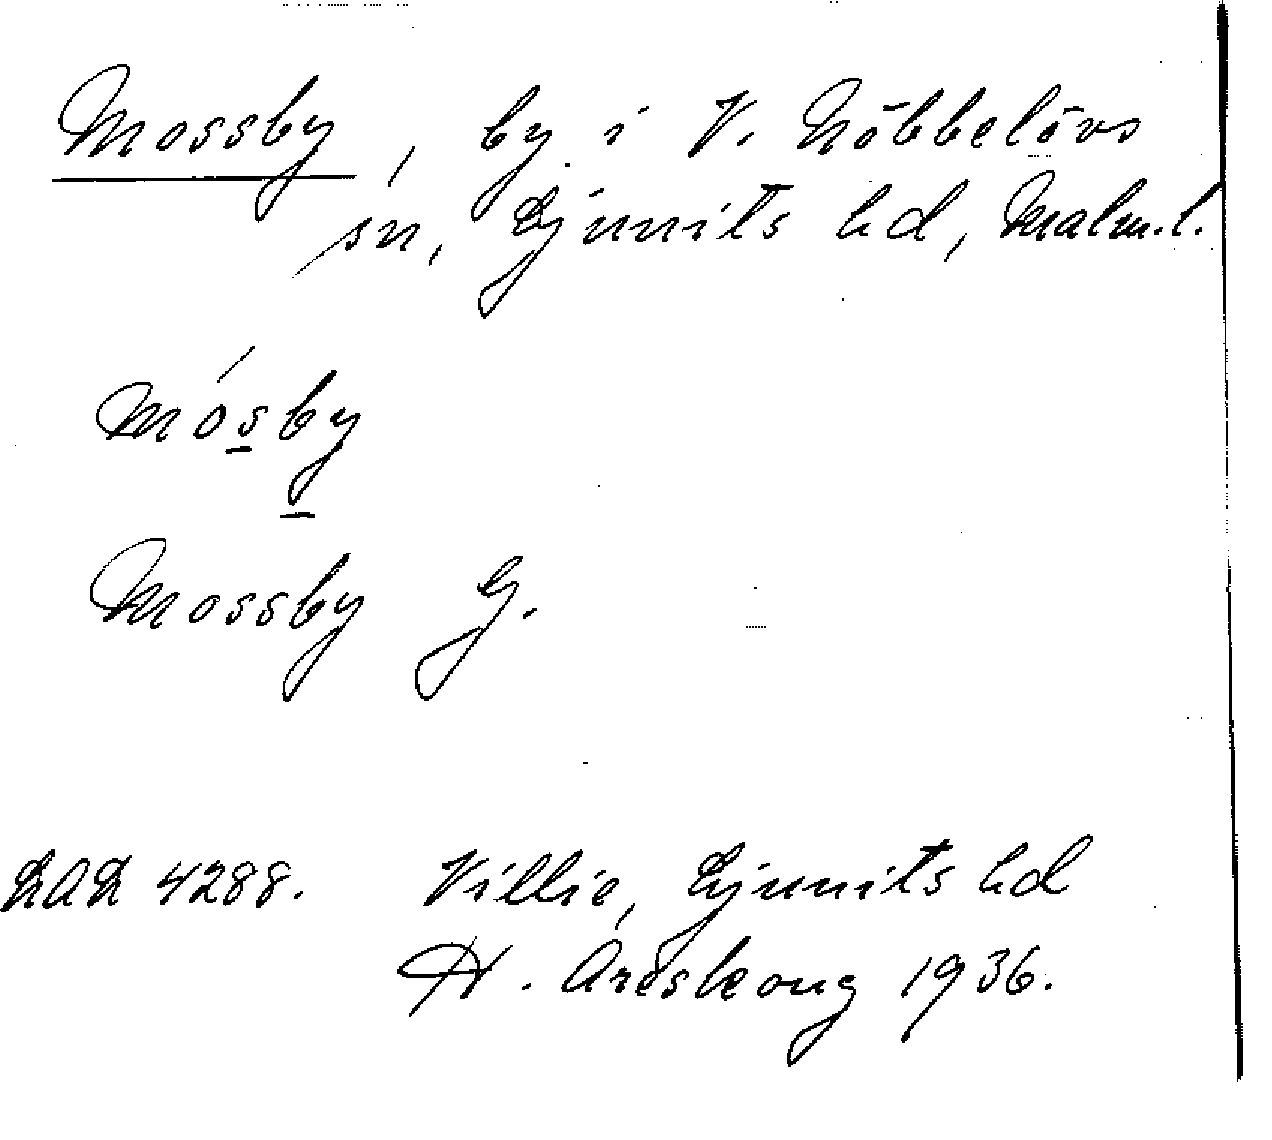 Mossby, by i V. Nöbbelövs
sn, Ljunits hd, Malm.l.
mósby
Mossby G.
LAL 4288. Villie, Ljunits hd
H. Areskoug 1936.